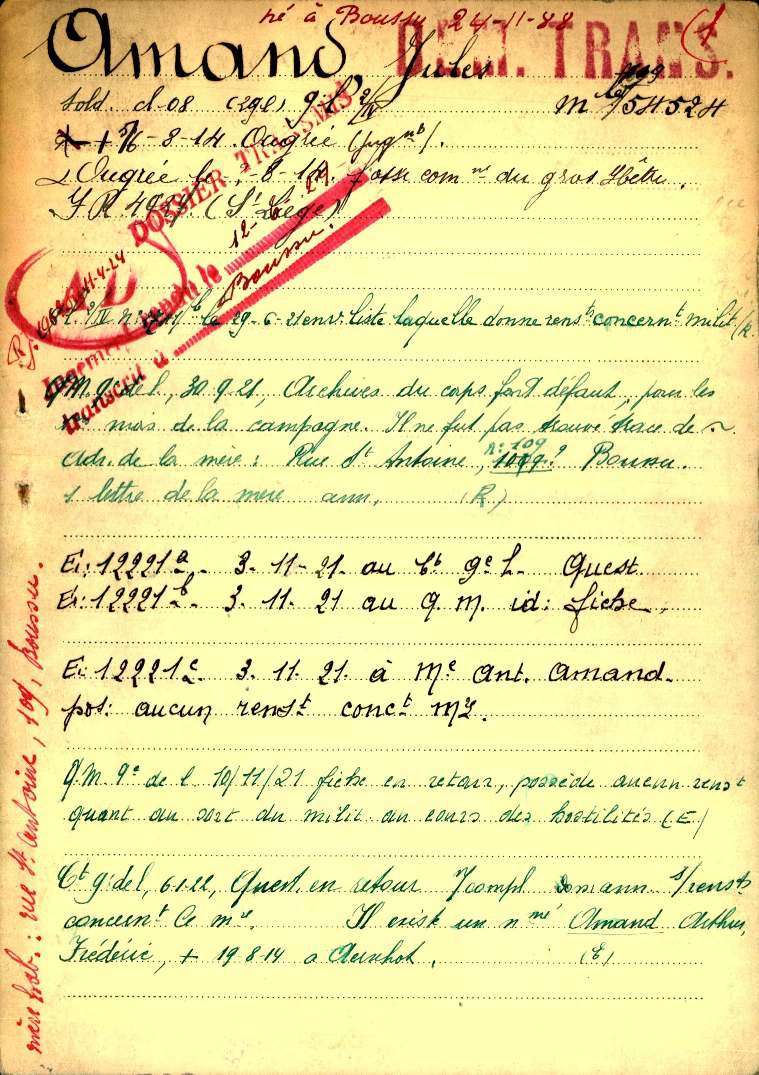 né à Boussu 24-11-88
DEM. TRANS.
Amand, Jules
sold. cl 08
154524
5/6-8-14. Ougrée (jugnt).
Ougrée le -8-14. fosse comne du gros Hêtre.
(St Liège)
DOSSIER TRANSMIS
12-6-29
Jugement rendu le
transcrit à Boussu.
le 29-6-21 env. liste laquelle donne renst concernt milit
de l, 30.9.21, Archives du corps font défaut, pour les
mois de la campagne. Il ne fut pas trouvé trace de
adr. de la mère: Rue St Antoine, n: 109 Boussu.
1 lettre de la mère ann. (R)
E: 12221a. 3-11-21. au Ct ge L. Quest.
E: 12221b. 3. 11. 21 au Q. M. id: fiche.
E: 12221c. 3. 11. 21. à Me Ant. Amand.
pos: aucun renst conct
Q.M. Ge de l 10/11/21 fiche en retour, possède aucun renst
quant au sort du milit au cours des hostilités (E)
Ct g. de l, 6-1-22, Quest. en retour s/renst
concernt le me. Il existe un n mé Amand Arthur,
Frédéric, + 19-8-14 a Aerschot. (E)
mère hab.: rue St Antoine, 109, Boussu.